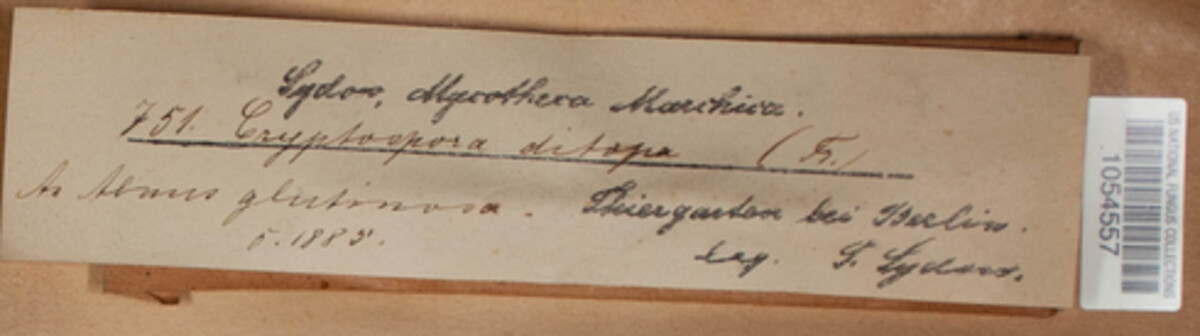 Sydow, Mycotheca Marchica.
751. Cryptospora ditopa (Fr.)
An Alnus glutinosa. Thiergarten bei Berlin.
5. 1885.
leg. P. Sydow.
US NATIONAL FUNGUS COLLECTIONS
1054557